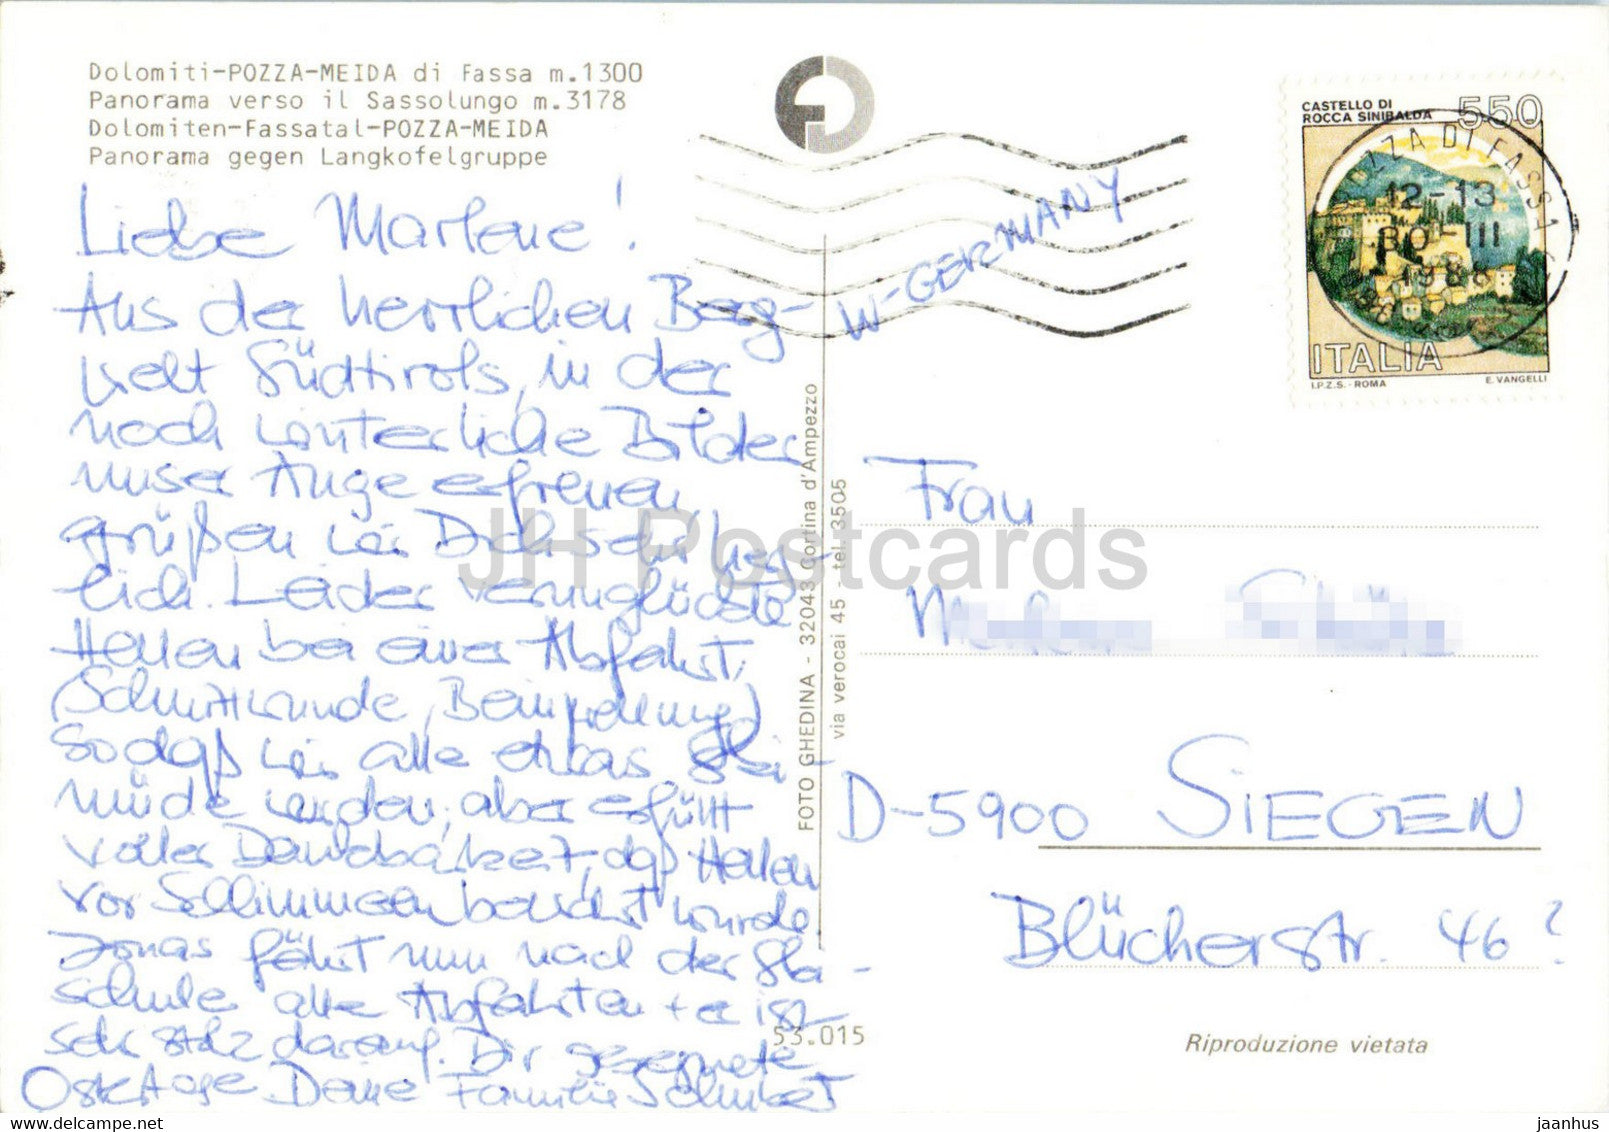 Dolomiti-POZZA-MEIDA di Fassa m.1300
Panorama verso il Sassolungo m.3178
Dolomiten-Fassatal-POZZA-MEIDA
Panorama gegen Langkofelgruppe
Liebe Marlene!
Aus der herrlichen Berg-
welt Südtirols, in der
noch winterliche Bilder
unser Auge erfreuen,
grüßen wir Dich sehr herz-
lich. Leider verunglückte
Helen bei einer Abfahrt,
(Schnittwunde, Beinprellung)
sodaß wir alle etwas ski-
müde wurden, aber erfüllt
voller Dankbarkeit, daß Helen
vor Schlimmeren bewahrt wurde
Jonas fährt nun nach der Ski-
schule alle Abfahrten + er ist
sehr stolz darauf. Dir gesegnete
Ostertage. Deine Familie Schubert
FOTO GHEDINA - 32043 Cortina d'Ampezzo
via verocai 45 - tel. 3505
53.015
W-GERMANY
CASTELLO DI
ROCCA SINIBALDA
550
POZZA DI FASSA
12-13
30-III
1986
ITALIA
I.P.Z.S. - ROMA
E. VANGELLI
Frau
D-5900 SIEGEN
Blücherstr. 46?
Riproduzione vietata
JH Postcards
jaanhus @ www.delcampe.net